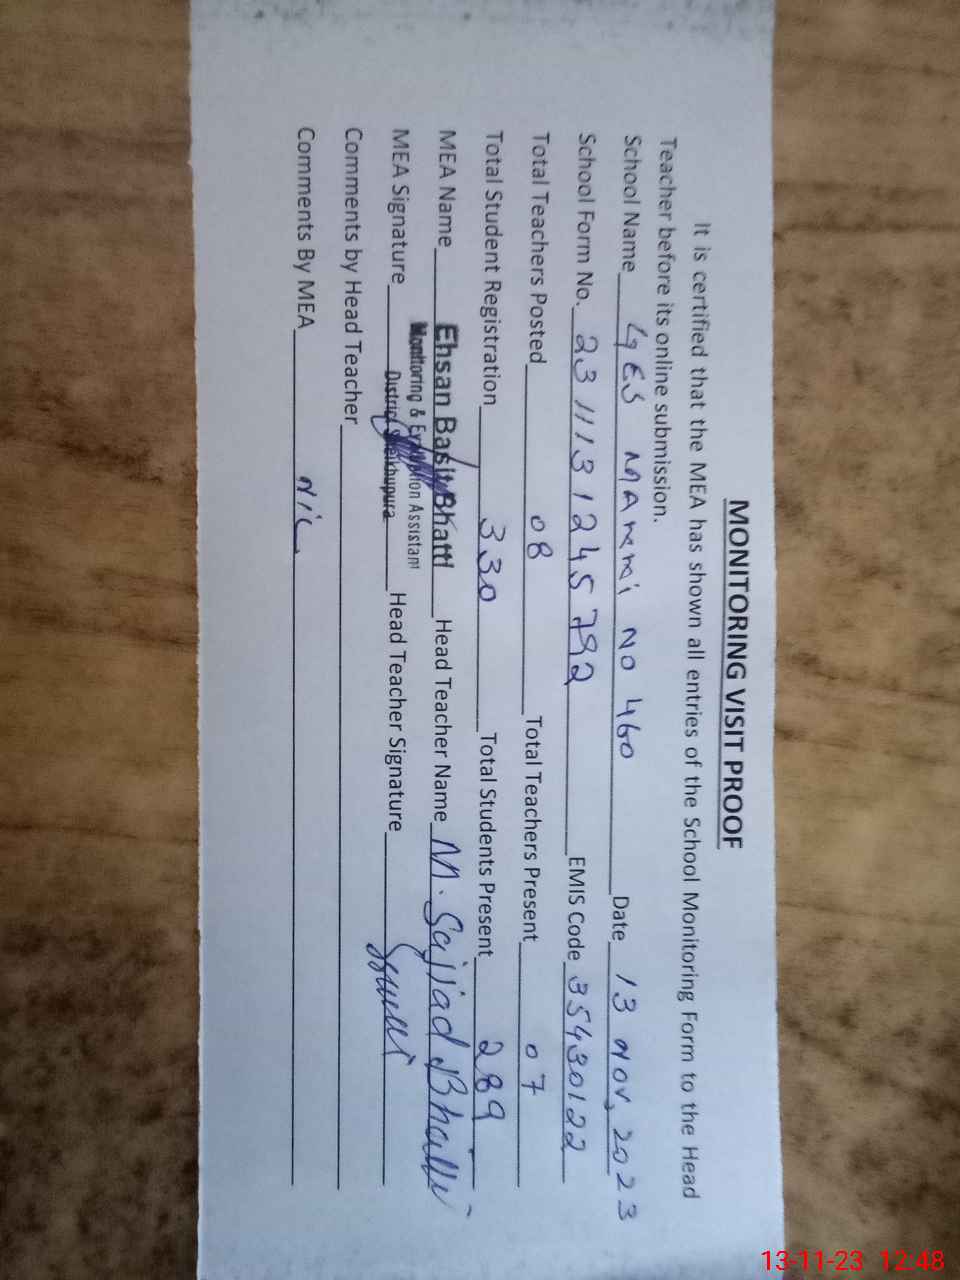 MONITORING VISIT PROOF
It is certified that the MEA has shown all entries of the School Monitoring Form to the Head
Teacher before its online submission.
School Name GES MAmmi NO 460 Date 13 Nov, 2023
School Form No. 23 11131245792 EMIS Code 35430122
Total Teachers Posted 08 Total Teachers Present 07
Total Student Registration 330 Total Students Present 289
MEA Name Ehsan Basit Bhatti Head Teacher Name M. Sajjad Bhatti
Monitoring & Evaluation Assistant
MEA Signature District Sheikhupura Head Teacher Signature
Comments by Head Teacher
Comments By MEA NIL
13-11-23 12:48